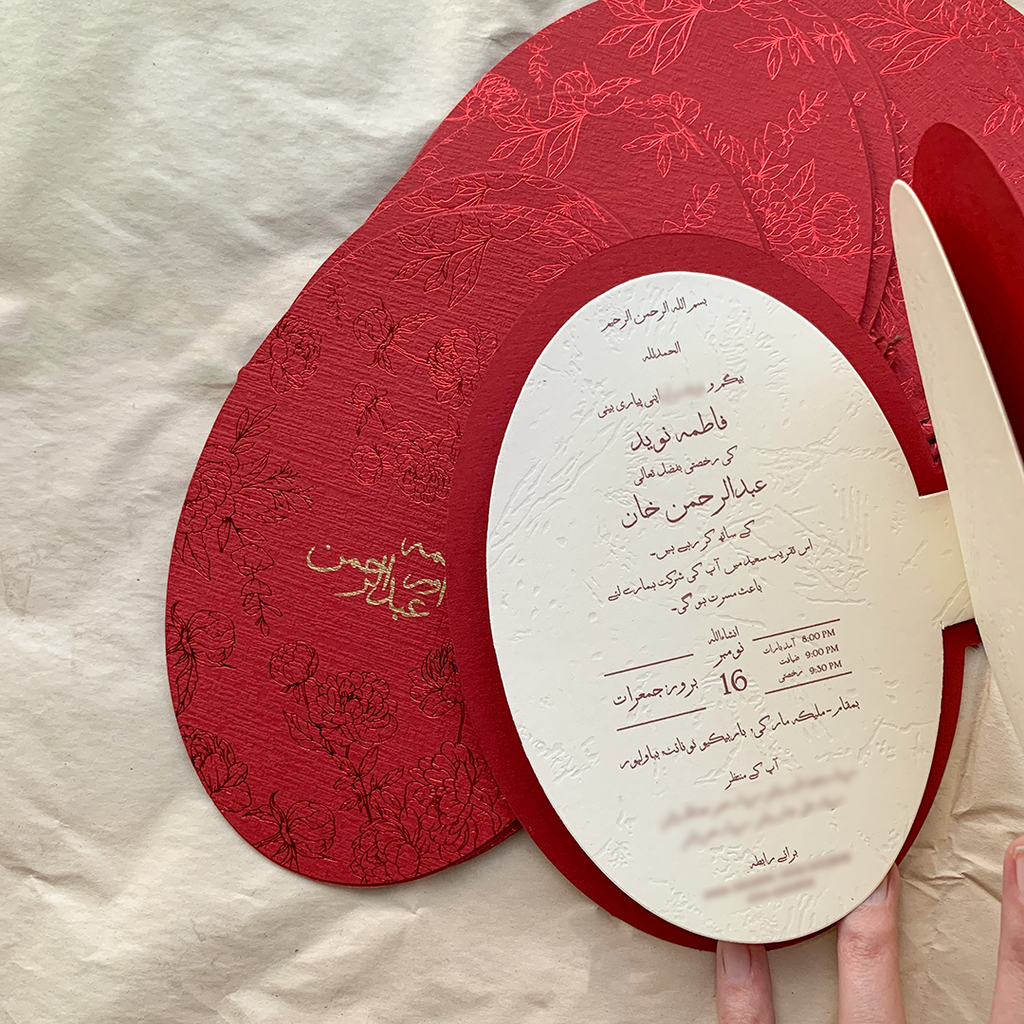 بسم الله الرحمن الرحیم
الحمدللہ
بیگم و
اپنی پیاری بیٹی
فاطمہ نوید
کی رخصتی بفضل تعالی
عبدالرحمن خان
کے ساتھ کر رہے ہیں۔
اس تقریب سعید میں آپ کی شرکت ہمارے لیے
باعث مسرت ہو گی۔
انشاءاللہ
نومبر
16
بروز جمعرات
آمد بارات 8:00 PM
ضیافت 9:00 PM
رخصتی 9:30 PM
بمقام - ملیکہ مارکی، باربیکیو ٹو نائٹ بہاولپور
آپ کے منتظر
برائے رابطہ
عبدالرحمن